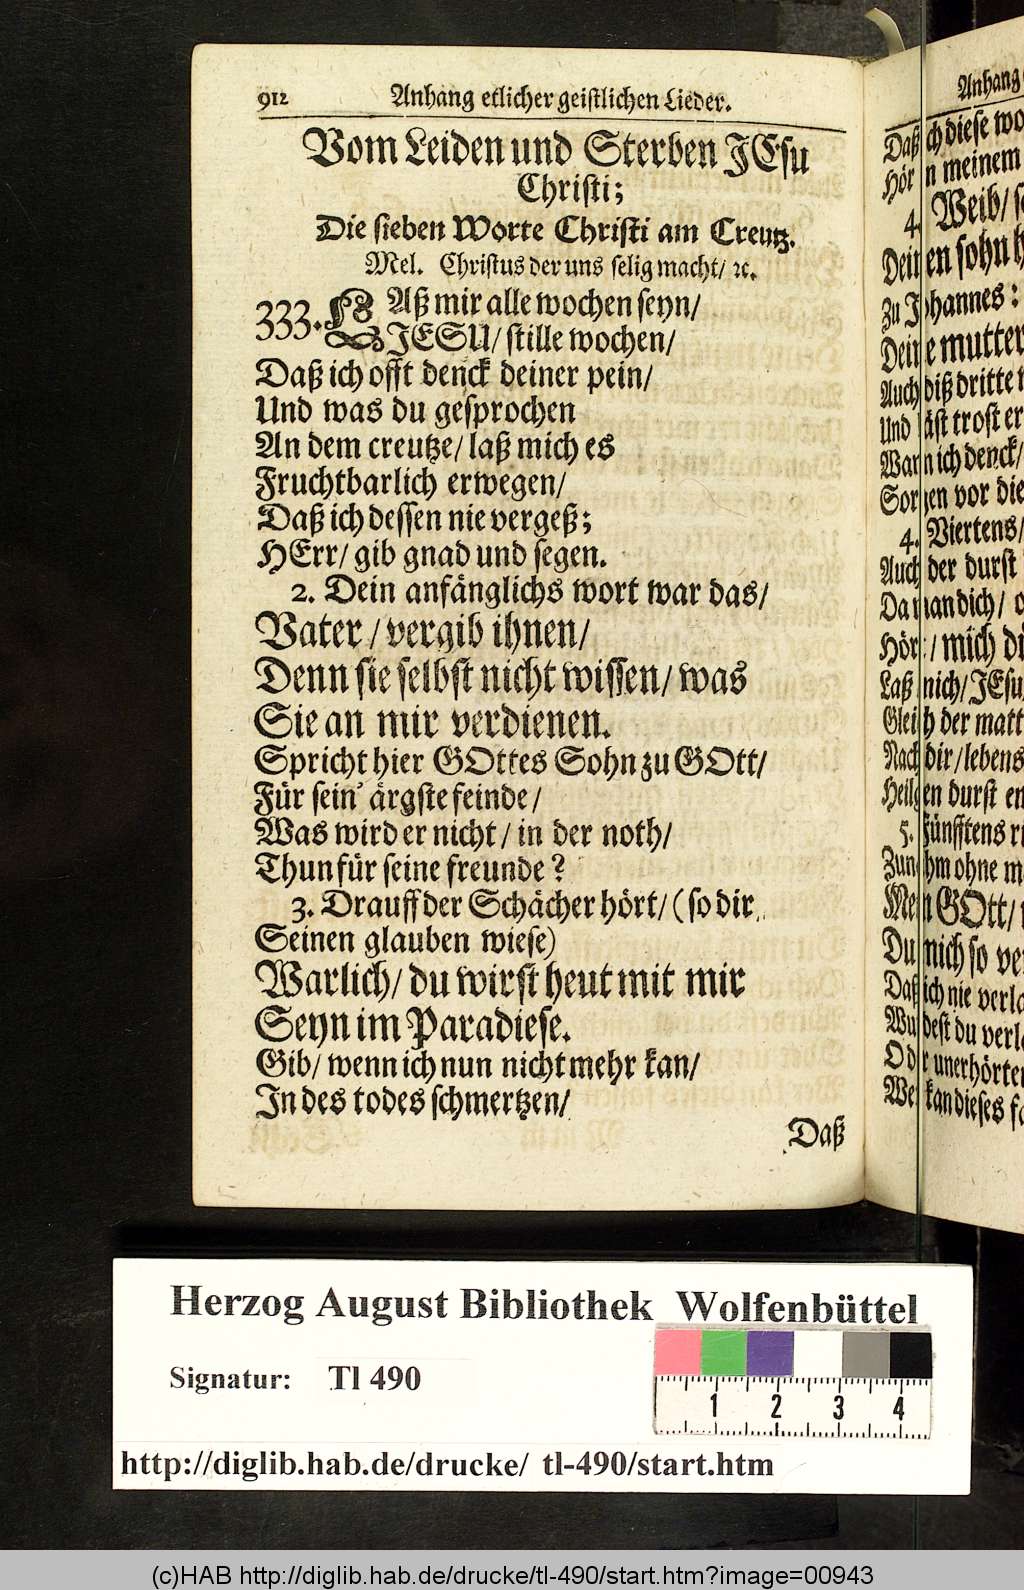 912 Anhang etlicher geistlichen Lieder.
Vom Leiden und Sterben JEsu
Christi;
Die sieben Worte Christi am Creutz.
Mel. Christus der uns selig macht/ ꝛc.
333. LAß mir alle wochen seyn/
JESU/ stille wochen/
Daß ich offt denck deiner pein/
Und was du gesprochen
An dem creutze/ laß mich es
Fruchtbarlich erwegen/
Daß ich dessen nie vergeß;
HErr/ gib gnad und segen.
2. Dein anfänglichs wort war das/
Vater/ vergib ihnen/
Denn sie selbst nicht wissen/ was
Sie an mir verdienen.
Spricht hier GOttes Sohn zu GOtt/
Für sein' ärgste feinde/
Was wird er nicht/ in der noth/
Thun für seine freunde?
3. Drauff der Schächer hört/ (so dir
Seinen glauben wiese)
Warlich/ du wirst heut mit mir
Seyn im Paradiese.
Gib/ wenn ich nun nicht mehr kan/
In des todes schmertzen/
Daß
Anhang
Daß ich diese
Hör in meinem
4. Weib/
Deinen sohn
Zu Johannes:
Deine mutter
Auch diß dritte
Und läst trost
Wann ich denck/
Sorgen vor die
4. Viertens/
Auch der durst
Da man dich/
Hört/ mich
Laß mich/ JEsu
Gleich der matt
Nach dir/ lebens
Heilgen durst
5. Fünfftens
Zun ihm ohne
Mein GOtt/
Du mich so
Daß ich nie
Wurdest du
Oder unerhörter
Wer kan dieses
Herzog August Bibliothek Wolfenbüttel
Signatur: Tl 490
1 2 3 4
http://diglib.hab.de/drucke/ tl-490/start.htm
(c)HAB http://diglib.hab.de/drucke/tl-490/start.htm?image=00943